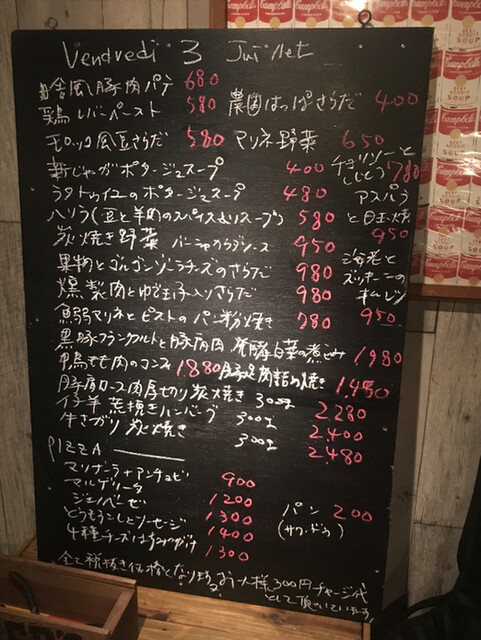 Vendredi 3 Juillet
田舎風豚肉パテ 680
鶏レバーペースト 580
農園はっぱさらだ 400
モロッコ風豆さらだ 580
マリネ野菜 650
新じゃがポタージュスープ 400
チョリソーと
ししとう 780
ラタトゥイユのポタージュスープ 480
アスパラ
と目玉焼
950
ハリラ(豆と羊肉のスパイス入りスープ) 580
炭焼き野菜 バーニャカウダソース 950
海老と
ズッキーニの
オムレツ
950
果物とゴルゴンゾーラチーズのさらだ 980
燻製肉とゆで玉子入りさらだ 980
鰯マリネとピストのパン粉焼き 780
黒豚フランクフルトと豚肩肉 発酵白菜の煮込み 1980
鴨もも肉のコンフィ 1880
豚足肉詰め焼き 1480
豚肩ロース肉厚切り炭焼き 300g 2280
仔羊 荒挽きハンバーグ 300g 2400
牛さがり 炭焼き 300g 2480
PIZZA
マリナーラ+アンチョビ 900
マルゲリータ 1200
ジェノベーゼ 1300
とうもろこしとソーセージ 1400
4種チーズはちみつがけ 1300
パン 200
(サワードゥ)
全て税抜き価格となります。お一人様300円チャージ代
として頂いています。
Campbell's
SOUP